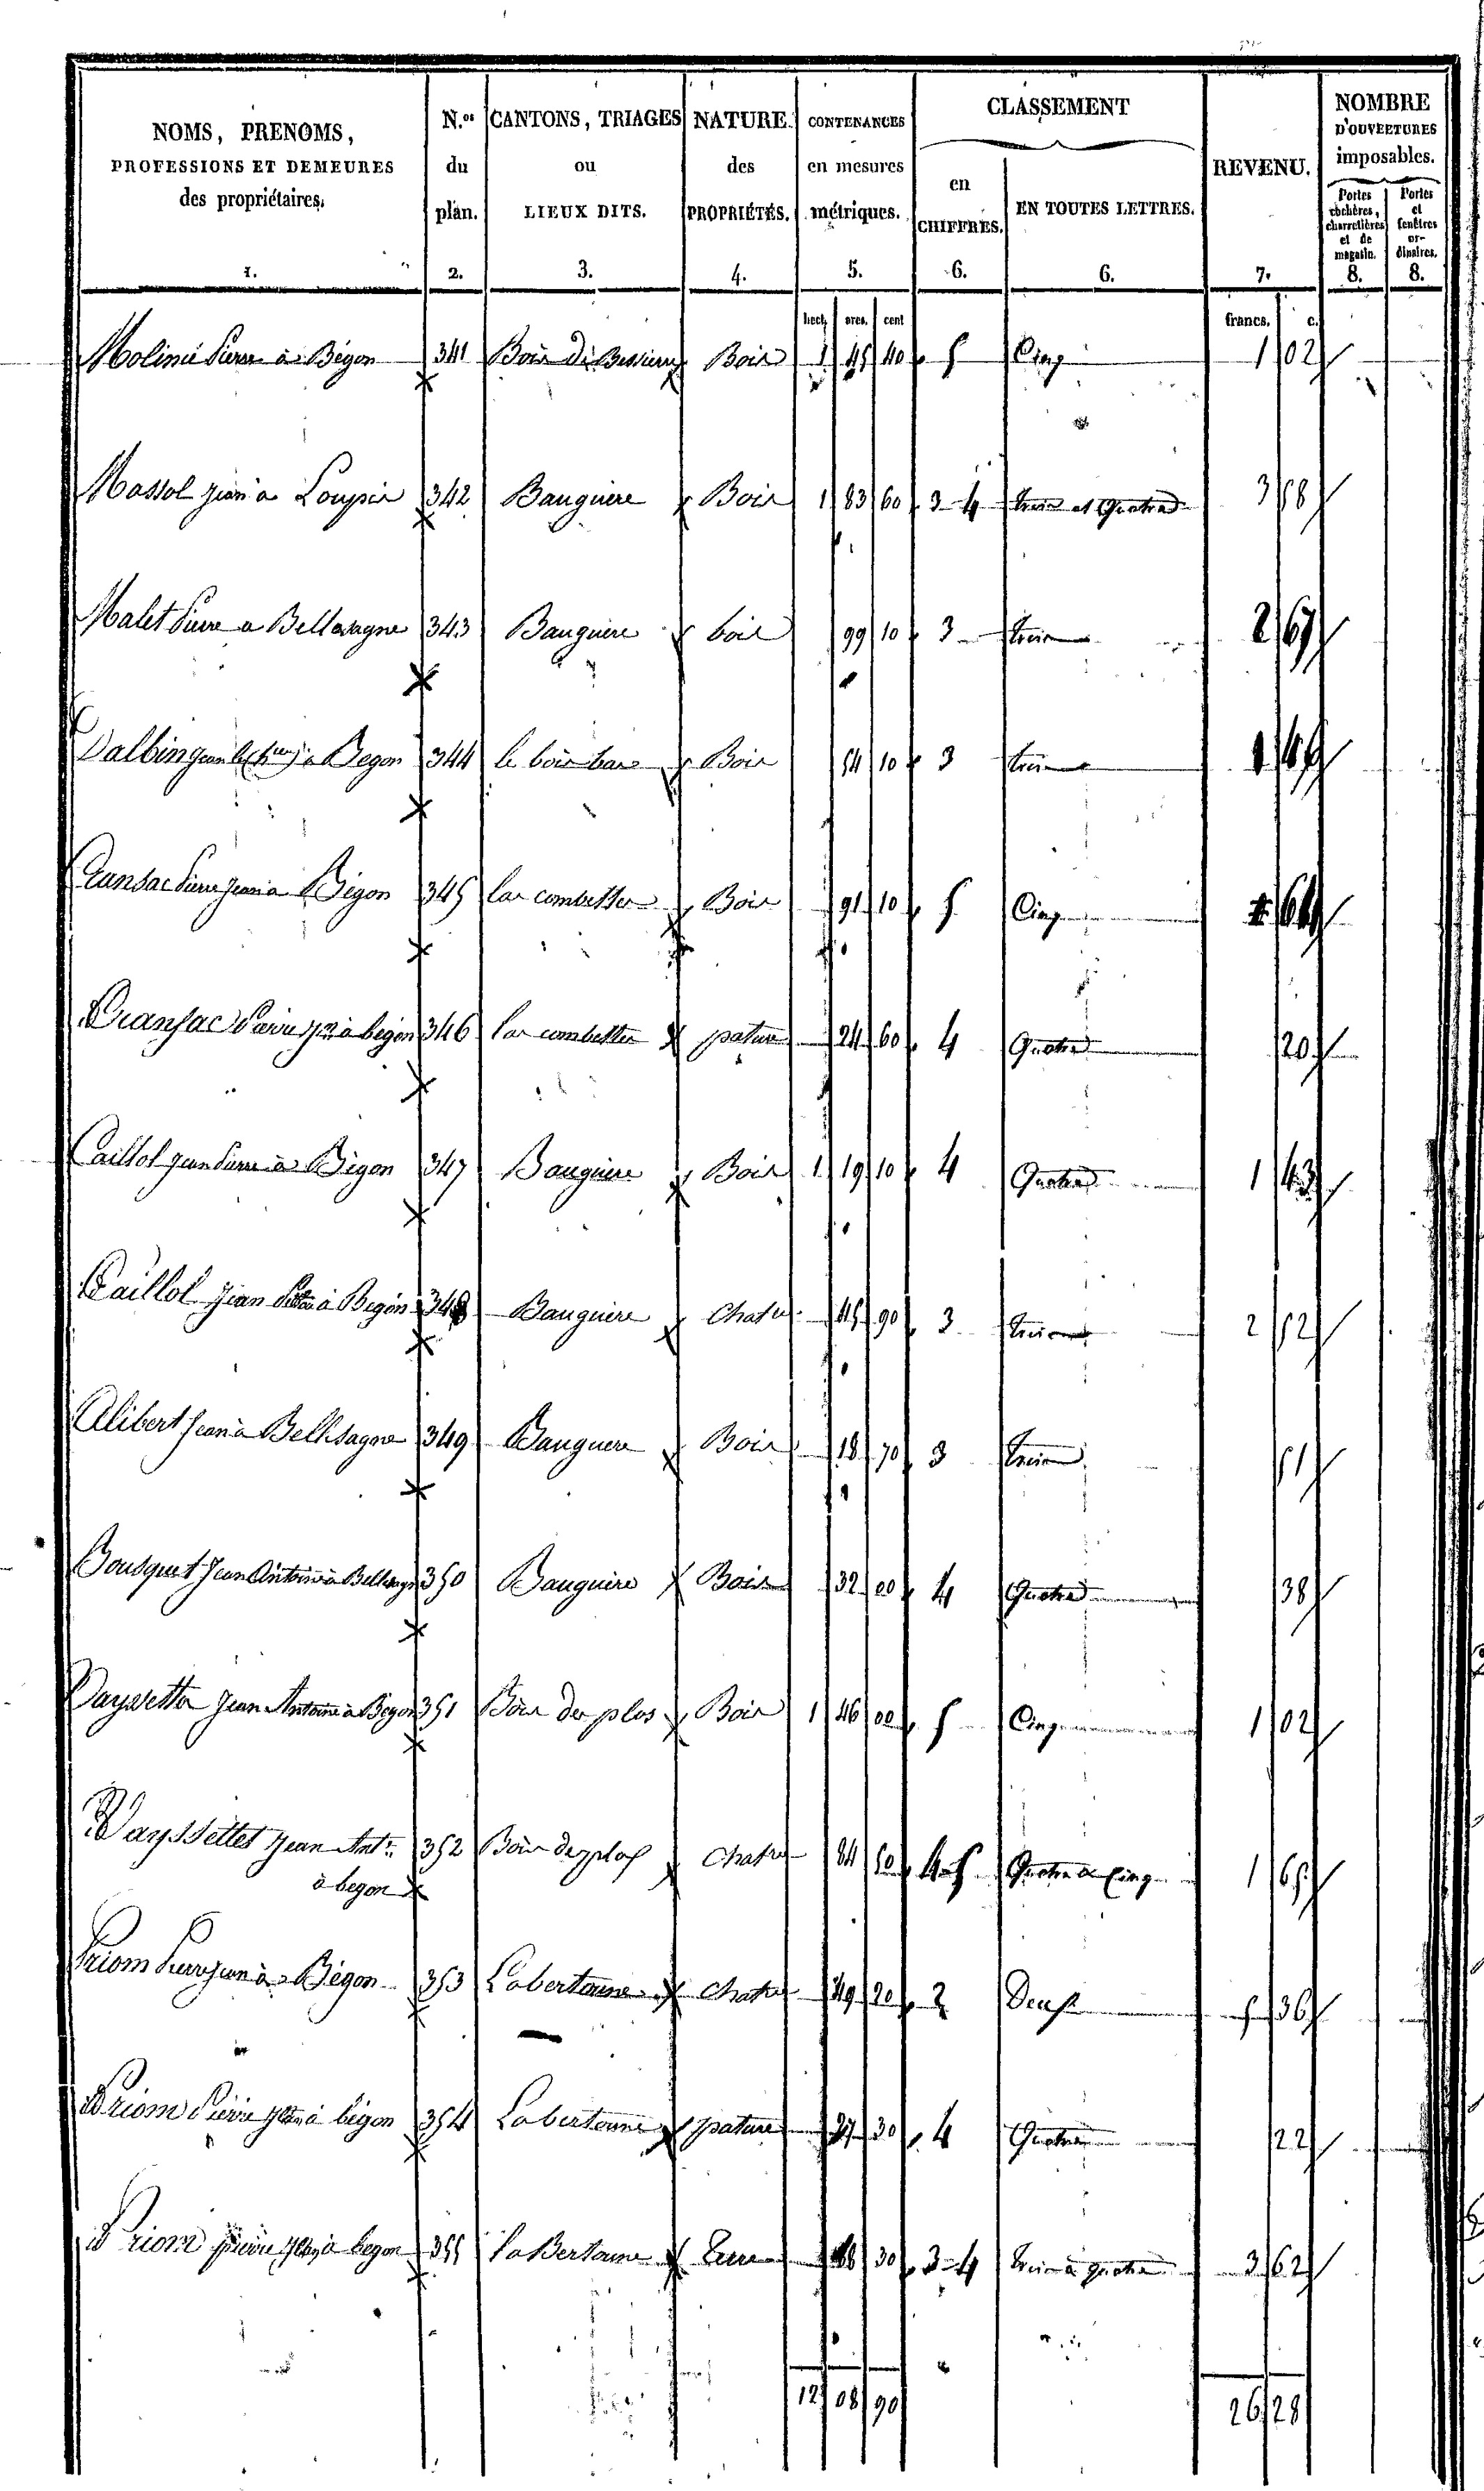 NOMS, PRENOMS, PROFESSIONS ET DEMEURES des propriétaires. 1.
N.os du plan. 2.
CANTONS, TRIAGES ou LIEUX DITS. 3.
NATURE des PROPRIÉTÉS. 4.
CONTENANCES en mesures métriques. 5.
CLASSEMENT
en CHIFFRES. 6.
EN TOUTES LETTRES. 6.
REVENU. 7.
NOMBRE D'OUVERTURES imposables.
Portes cochères, charretières et de magasin. 8.
Portes et fenêtres ordinaires. 8.
hect. ares. cent francs. c.
Molinié Pierre à Bégon 341 Bois de Bessieux Bois 1 45 40 5 Cinq 1 02
Massol Jean à Loupin 342 Bauguiere Bois 1 83 60 3-4 trois et Quatre 3 58
Malet Pierre a Bellesagne 343 Bauguiere bois 99 10 3 trois 2 67
Dalbin Jean à Begon 344 le bois bas Bois 54 10 3 trois 1 49
Pierre Jean à Bégon 345 las combettes Bois 91 10 5 Cinq 64
Pierre Jean à begon 346 las combettes pature 24 60 4 Quatre 20
Caillol Jean Pierre à Bégon 347 Bauguiere Bois 1 19 10 4 Quatre 1 43
Caillol Jean Pierre à Begon 348 Bauguiere Chatres 45 90 3 trois 2 52
Alibert Jean à Bellesagne 349 Bauguere Bois 18 70 3 trois 51
Bousquet Jean Antoine à Bellesagne 350 Bauguiere Bois 32 00 4 Quatre 38
Vayssettes Jean Antoine à Begon 351 Bois des plos Bois 1 46 00 5 Cinq 1 02
Vayssettes Jean Ant.ne 352 Bois des plos Chatres 84 50 4-5 Quatre à Cinq 1 65
à begon
Priom Pierre Jean à Bégon 353 Labertonne Chatres 49 20 2 Deux 5 36
Priom Pierre Jean à bégon 354 Labertonne pature 27 30 4 Quatre 22
Priom pierre Jean à begon 355 la Bertonne Terre 30 3-4 trois à quatre 3 62
12 08 90 26 28